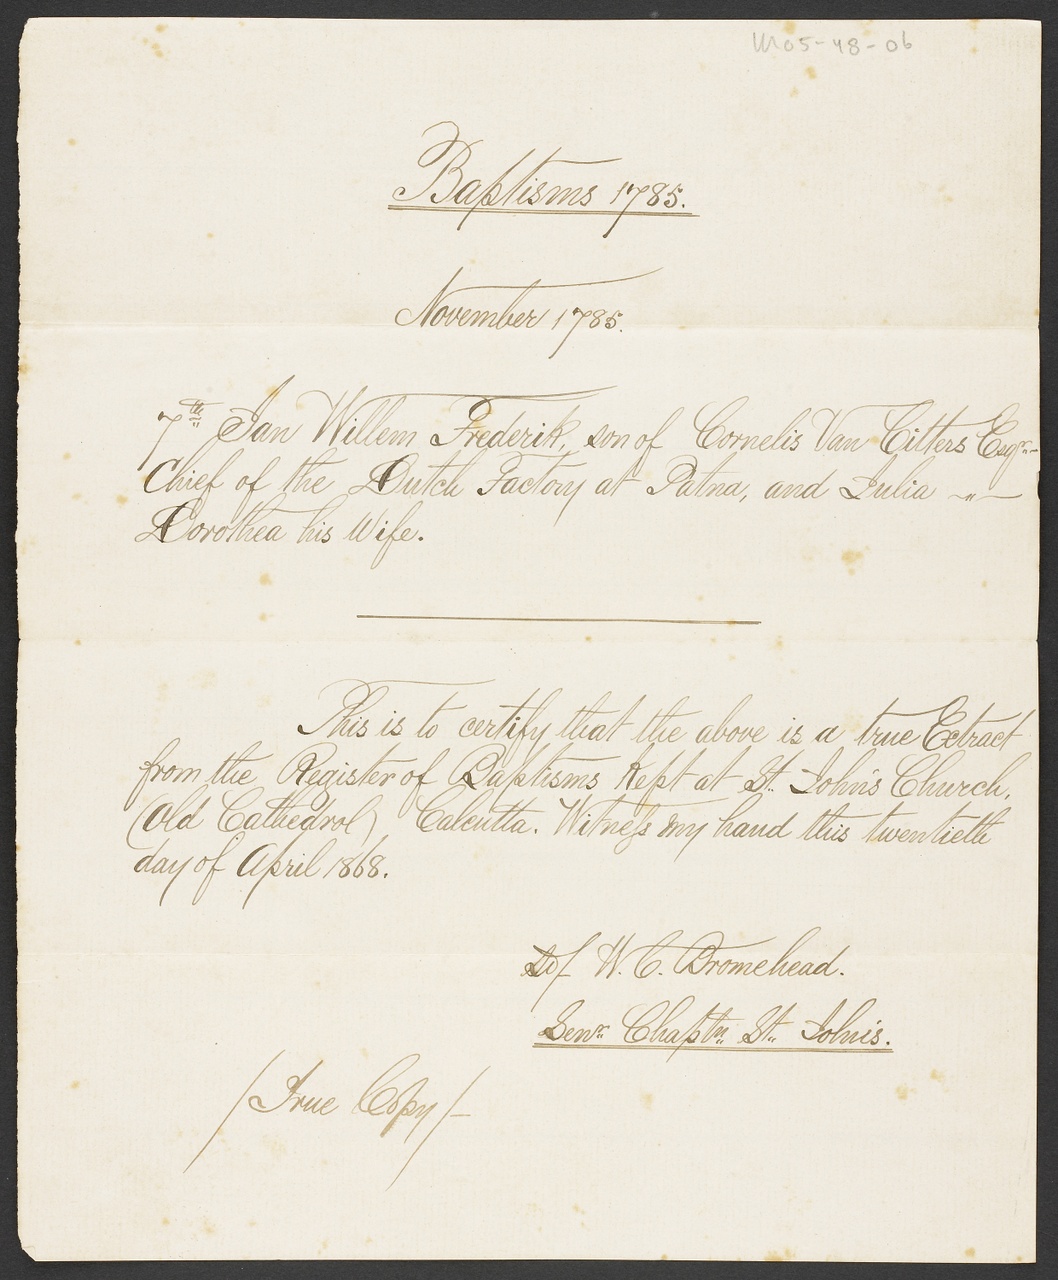 W05-48-06
Baptisms 1785.
November 1785.
7th Jan Willem Frederik, son of Cornelis Van Citters Esqr.
Chief of the Dutch Factory at Patna, and Julia
Dorothea his Wife.
This is to certify that the above is a true Extract
from the Register of Baptisms Kept at St. John's Church,
(Old Cathedral) Calcutta. Witness my hand this twentieth
day of April 1868.
W. C. Bromehead.
Senr. Chaptn. St. John's.
/True Copy/-